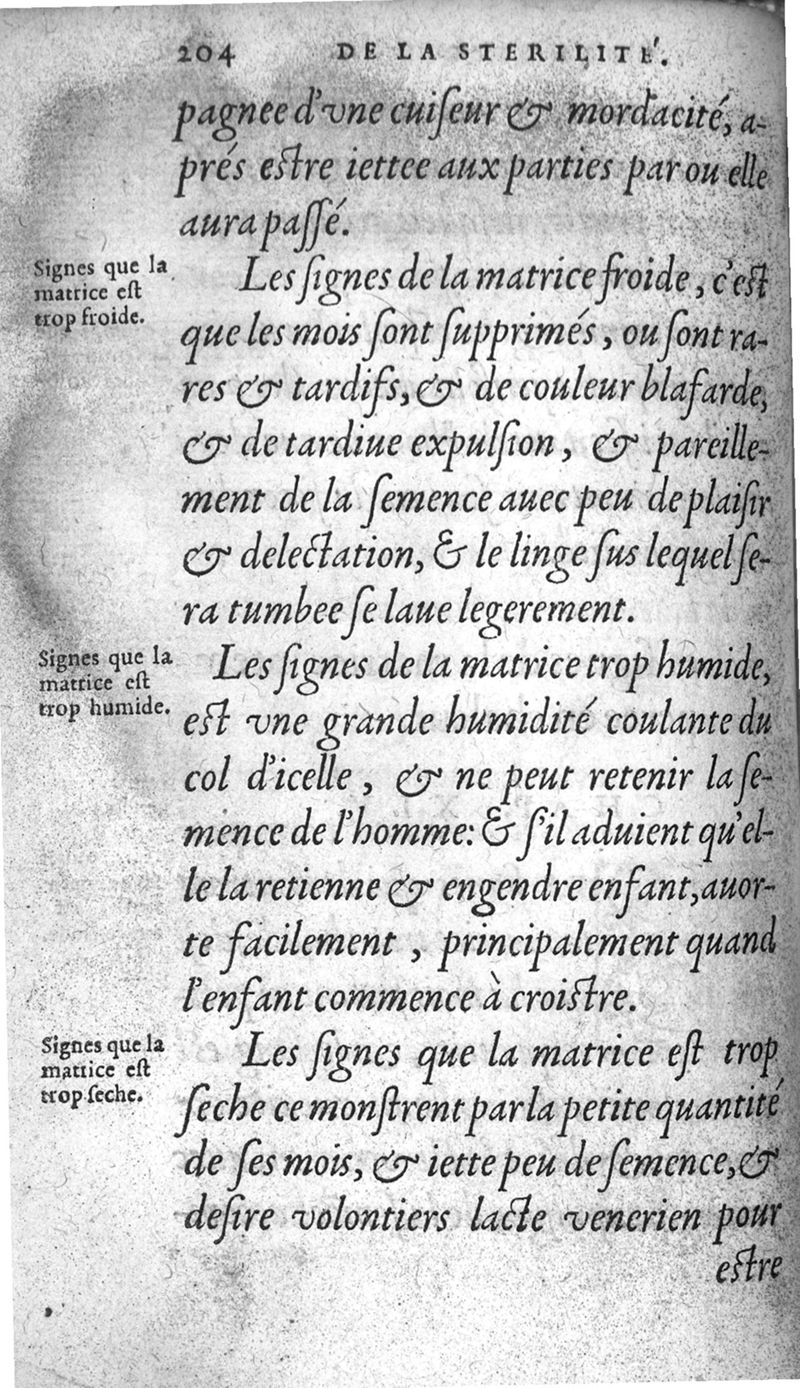 204 DE LA STERILITE'.
pagnee d'vne cuiſeur & mordacité, a-
prés eſtre iettee aux parties par ou elle
aura paſſé.
Signes que la
matrice eſt
trop froide.
Les ſignes de la matrice froide, c'eſt
que les mois ſont ſupprimés, ou ſont ra-
res & tardifs, & de couleur blafarde,
& de tardiue expulſion, & pareille-
ment de la ſemence auec peu de plaiſir
& delectation, & le linge ſus lequel ſe-
ra tumbee ſe laue legerement.
Signes que la
matrice eſt
trop humide.
Les ſignes de la matrice trop humide,
eſt vne grande humidité coulante du
col d'icelle, & ne peut retenir la ſe-
mence de l'homme: & ſ'il aduient qu'el-
le la retienne & engendre enfant, auor-
te facilement, principalement quand
l'enfant commence à croiſtre.
Signes que la
matrice eſt
trop ſeche.
Les ſignes que la matrice eſt trop
ſeche ce monſtrent par la petite quantité
de ſes mois, & iette peu de ſemence, &
deſire volontiers lacte venerien pour
eſtre